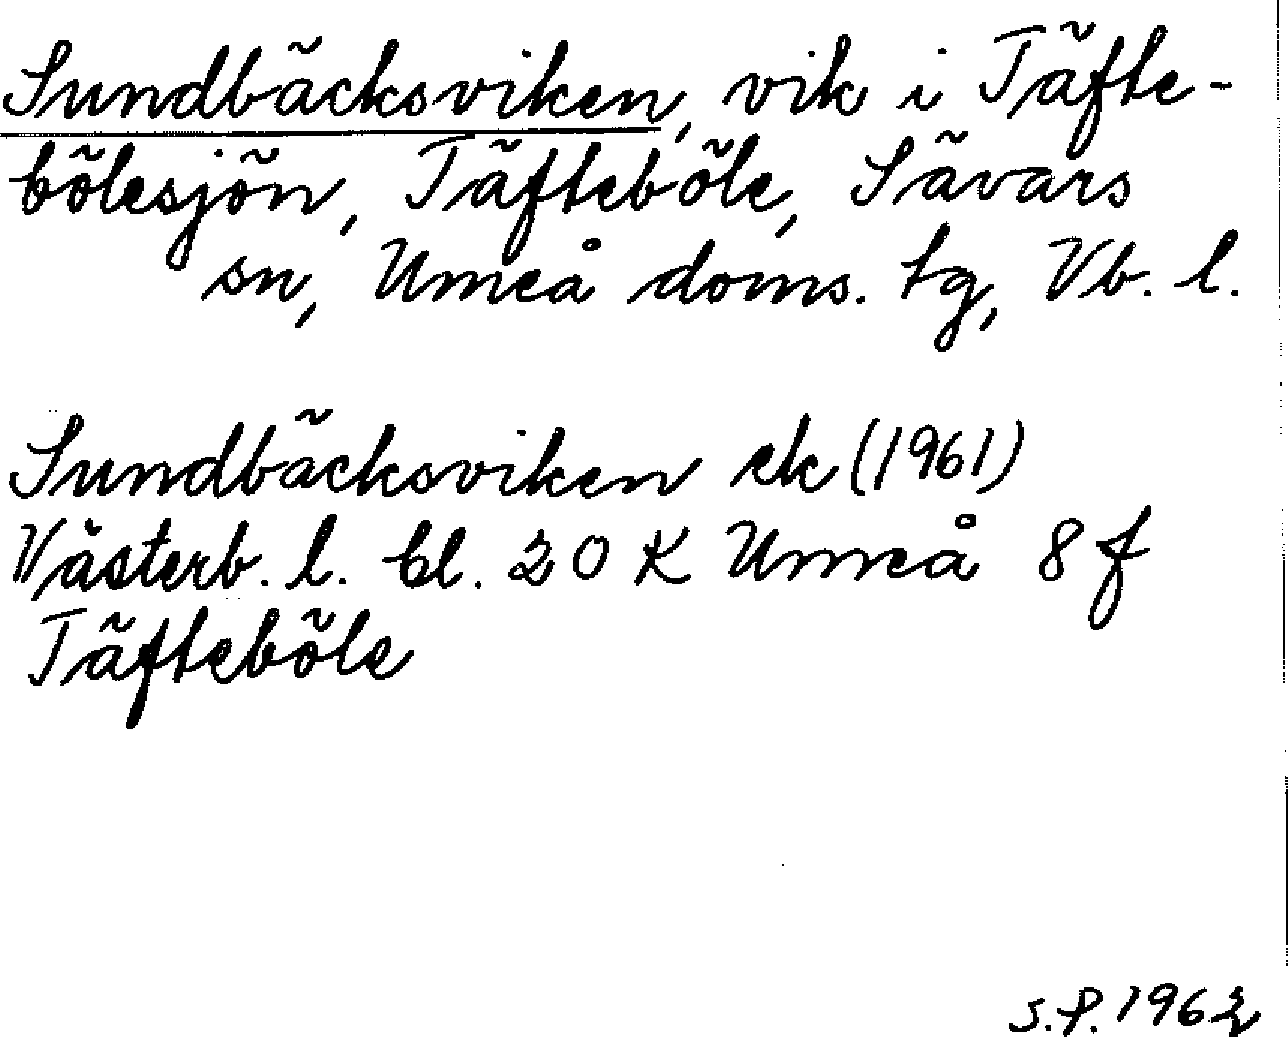 Sundbäcksviken, vik i Täfte-
bölesjön, Täfteböle, Sävars
sn, Umeå doms. tg, Vb. l.
Sundbäcksviken ek (1961)
Västerb. l. bl. 20 K Umeå 8 f
Täfteböle
S.P. 1963